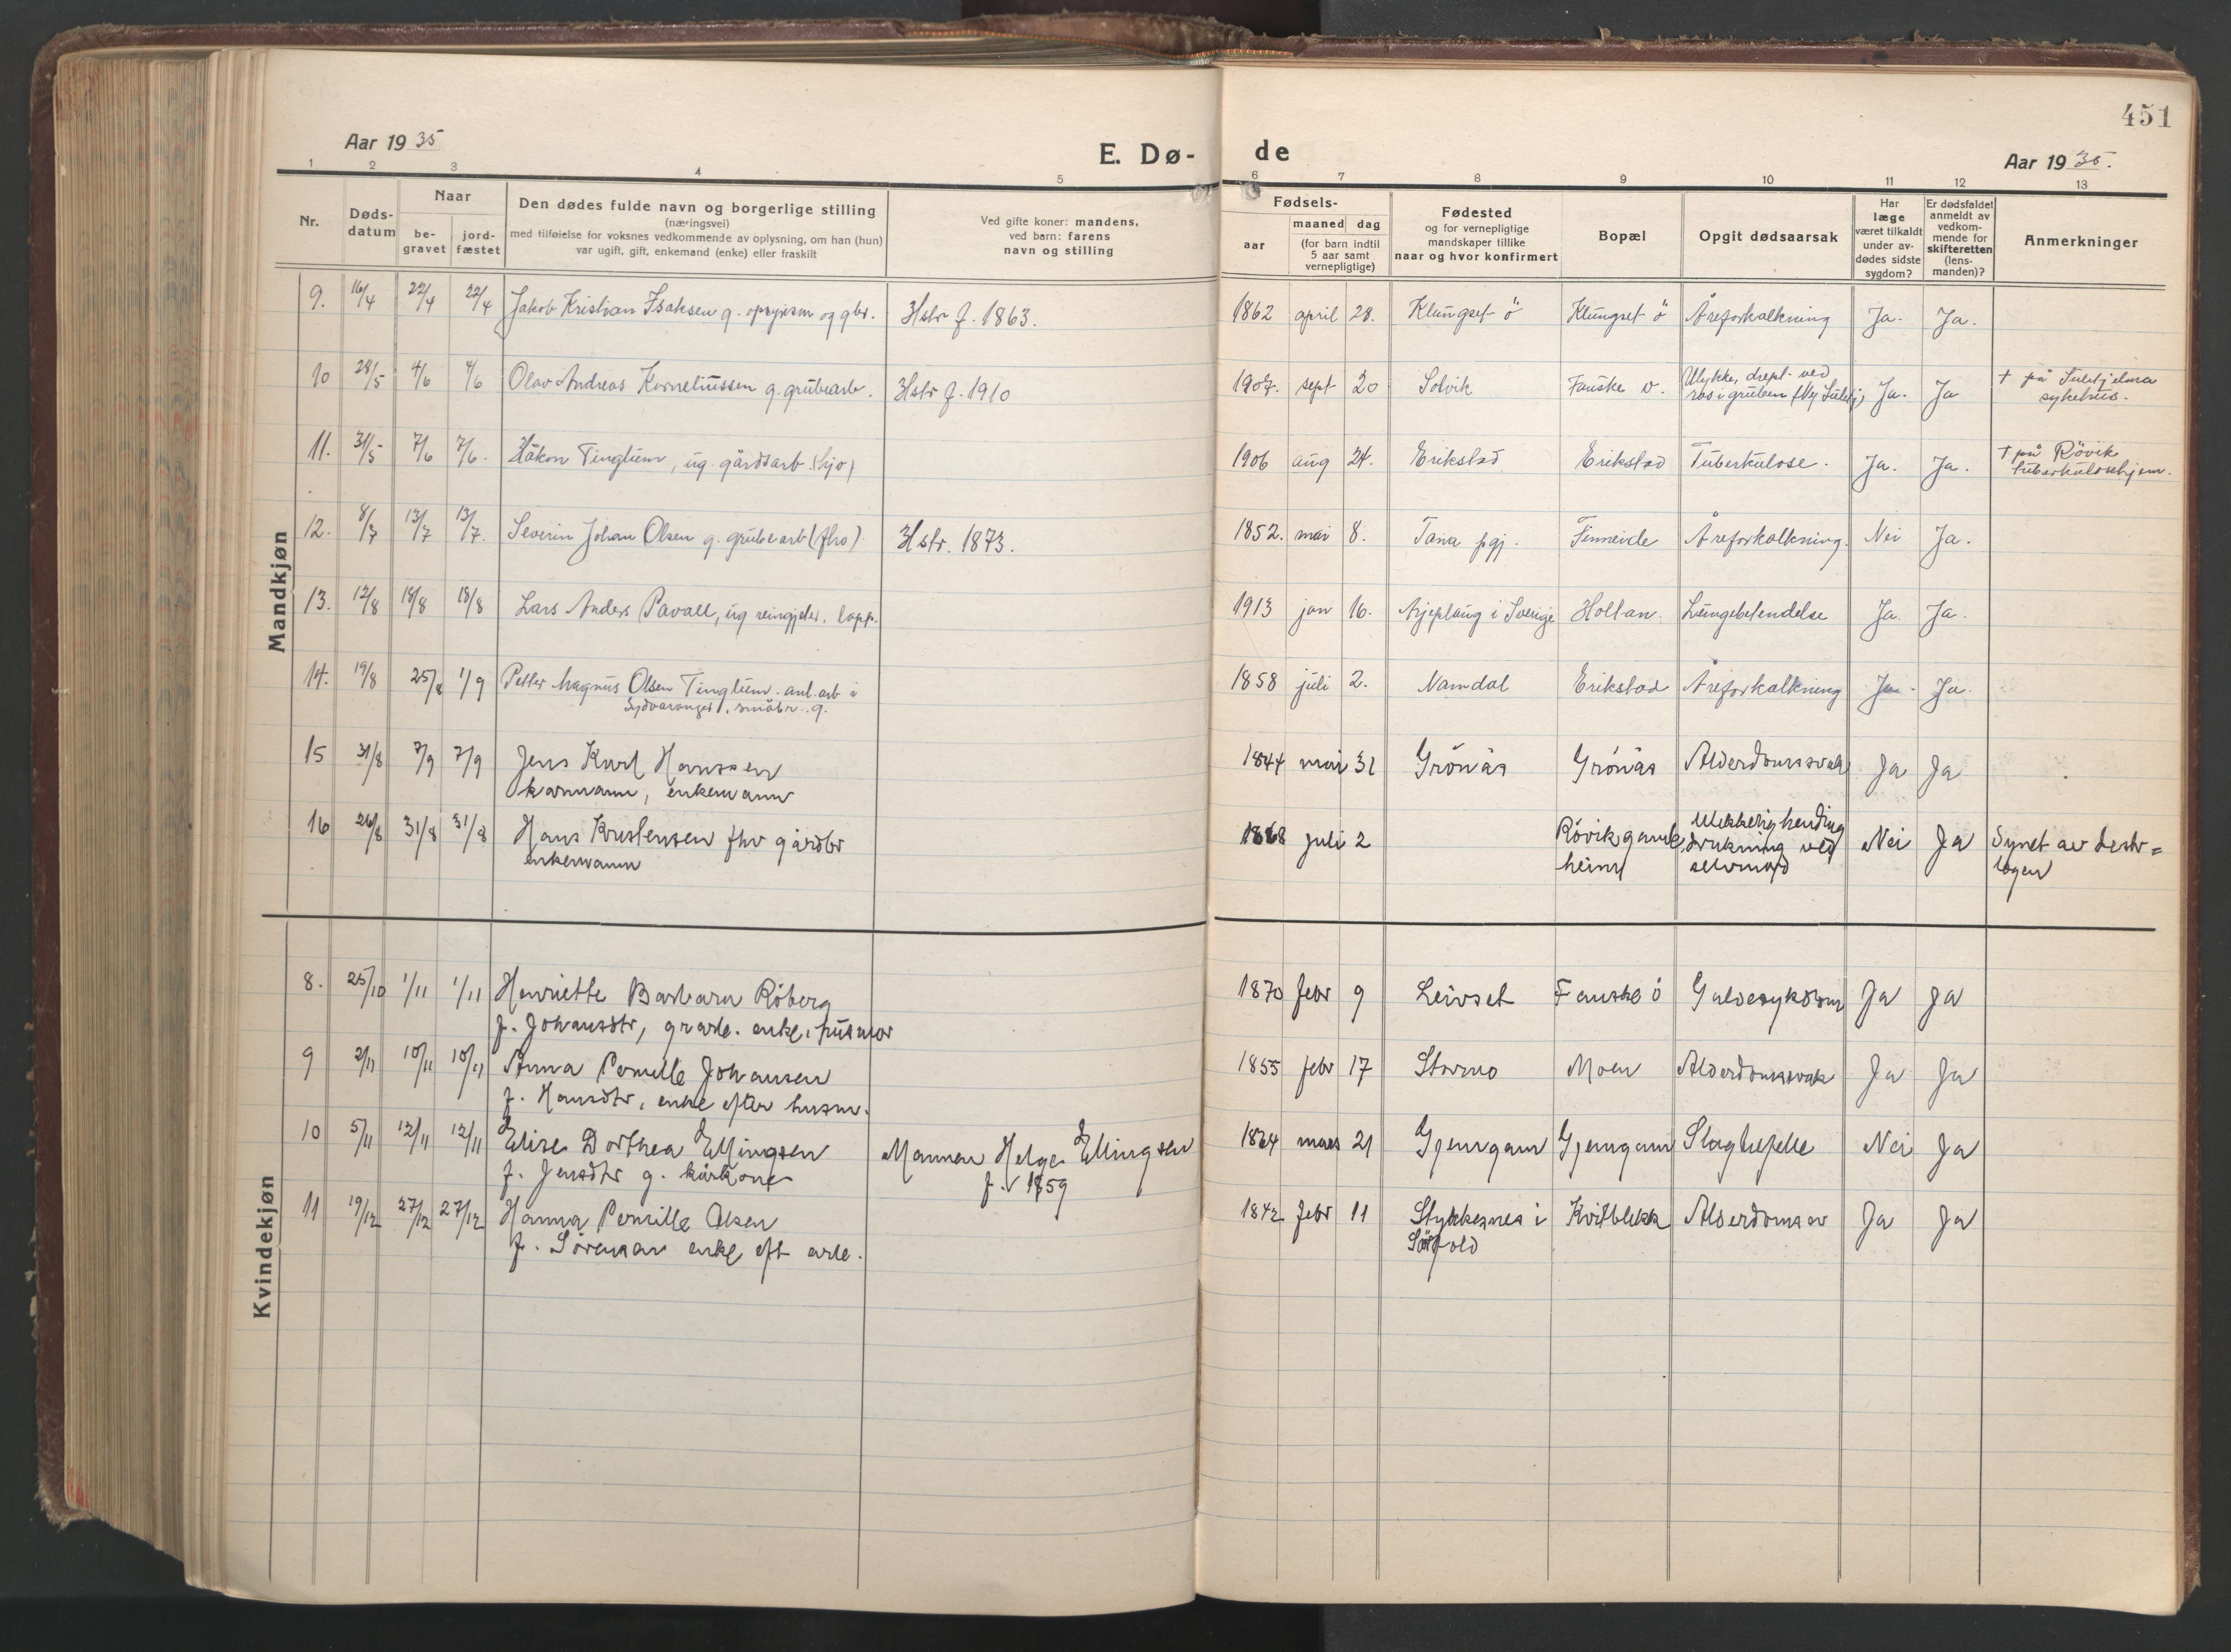 451
Aar 1935
E. Dø-
de
Aar 1935.
1 2 3 4 5 6 7 8 9 10 11 12 13
Nr.
Døds-
datum
Naar
be-
gravet
jord-
fæstet
Den dødes fulde navn og borgerlige stilling
(næringsvei)
med tilføielse for voksnes vedkommende av oplysning, om han (hun)
var ugift, gift, enkemand (enke) eller fraskilt
Ved gifte koner: mandens,
ved barn: farens
navn og stilling
Fødsels-
aar
maaned dag
(for barn indtil
5 aar samt
vernepligtige)
Fødested
og for vernepligtige
mandskaper tillike
naar og hvor konfirmert
Bopæl
Opgit dødsaarsak
Har
læge
været tilkaldt
under av-
dødes sidste
sygdom?
Er dødsfaldet
anmeldt av
vedkom-
mende for
skifteretten
(lens-
manden)?
Anmerkninger
Mandkjøn
9. 16/4 22/4 22/4 Jakob Kristian Isaksen g. og gbr. Hstr f. 1863. 1862 april 28. Klungset ö Klungset ö Åreforkalkning Ja. Ja.
10 28/5 4/6 4/6 Olav Andreas Korneliussen g. grubearb. Hstr f. 1910 1907. sept 20 Solvik Fauske v. Ulykke, drept ved
ras i gruben Ja. Ja † på Sulitjelma
sykehus.
11. 31/5 7/6 7/6. Håkon Tinglum, ug. gårdsarb. 1906 aug 24. Erikstad Erikstad Tuberkulose. Ja. Ja. † på Rövik
tuberkulosehjem.
12. 8/7 13/7 13/7. Severin Johan Olsen g. grubearb (fhv) Hstr. 1873. 1852. mai 8. Tana pgj. Finneide Åreforkalkning. Nei Ja.
13. 12/8 18/8 18/8 Lars Anders Pavall, ug reingjeter, lapp. 1913 jan 16. Arjeplaug i Sverige Holtan. Lungebetendelse Ja. Ja.
14. 19/8 25/8 1/9 Petter Magnus Olsen Tinglum. anl. arb i
Sydvaranger, småbr. g. 1858 juli 2. Namdal Erikstad Åreforkalkning Ja. Ja.
15 31/8 7/9 7/9 Jens Kurl Hanssen
kårmann, enkemann 1844 mai 31 Grönås Grönås Alderdomssvak Ja Ja
16 26/8 31/8 31/8 Hans Kristensen fhv gårdbr
enkemann 1868 juli 2 Rövik gamle
heim Ulykkelig hending
drukning ved
selvmord Nei Ja Synet av distr=
legen
Kvindekjøn
8. 25/10 1/11 1/11 Henriette Barbara Röberg
f. Johansdtr, enke, husmor 1870 febr 9 Leivset Fauske ö Galdesykdom Ja Ja
9 2/11 10/11 10/11 Anna Pernille Johansen
f. Hansdtr, enke efter husm. 1855 febr 17 Stormo Moen Alderdomssvak Ja Ja
10 5/11 12/11 12/11 Elise Dorthea Ellingsen
f. Jensdtr g. kårkone Mannen Helge Ellingsen
f. 1859 1864 mars 21 Gjemgam Gjemgam Slagtilfelle Nei Ja
11 19/12 27/12 27/12 Hanna Pernille Olsen
f. Sörensen enke eft arb. 1842 febr 11 Stykkesnes i
Sörfold Kvitblikk Alderdomssv Ja Ja